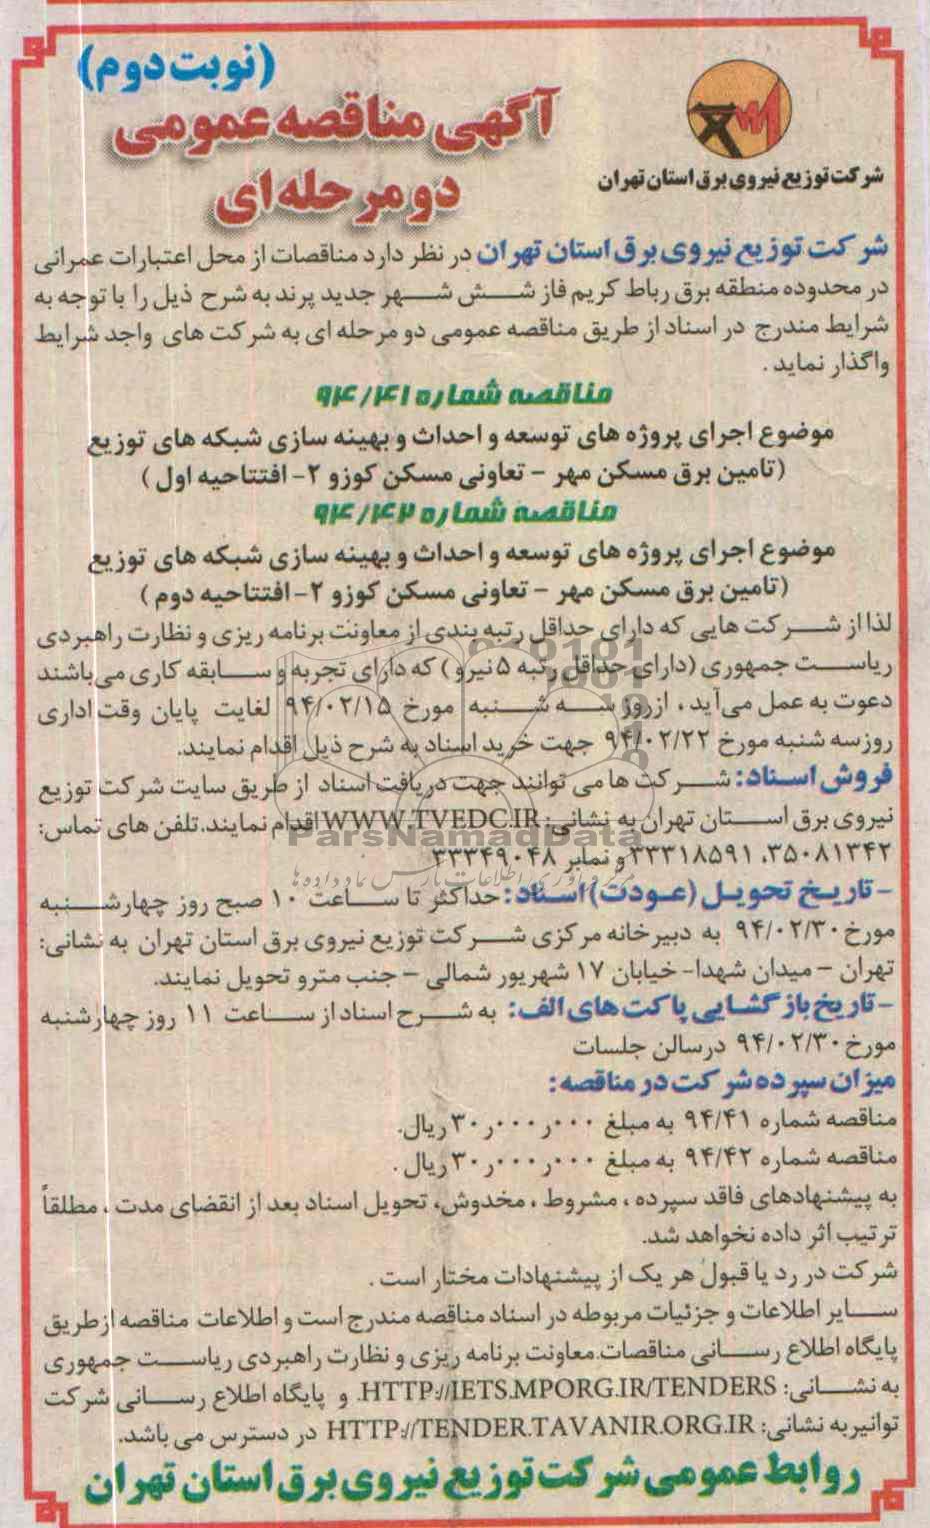 (نوبت دوم)
آگهی مناقصه عمومی
دو مرحله ای
شرکت توزیع نیروی برق استان تهران
شرکت توزیع نیروی برق استان تهران در نظر دارد مناقصات از محل اعتبارات عمرانی
در محدوده منطقه برق رباط کریم فاز شش شهر جدید پرند به شرح ذیل را با توجه به
شرایط مندرج در اسناد از طریق مناقصه عمومی دو مرحله ای به شرکت های واجد شرایط
واگذار نماید .
مناقصه شماره ۹۴/۴۱
موضوع اجرای پروژه های توسعه و احداث و بهینه سازی شبکه های توزیع
(تامین برق مسکن مهر - تعاونی مسکن کوزو ۲- افتتاحیه اول )
مناقصه شماره ۹۴/۴۲
موضوع اجرای پروژه های توسعه و احداث و بهینه سازی شبکه های توزیع
(تامین برق مسکن مهر - تعاونی مسکن کوزو ۲- افتتاحیه دوم )
لذا از شرکت هایی که دارای حداقل رتبه بندی از معاونت برنامه ریزی و نظارت راهبردی
ریاست جمهوری (دارای حداقل رتبه ۵ نیرو ) که دارای تجربه و سابقه کاری می باشند
دعوت به عمل می آید ، از روز سه شنبه مورخ ۹۴/۰۲/۱۵ لغایت پایان وقت اداری
روز سه شنبه مورخ ۹۴/۰۲/۲۲ جهت خرید اسناد به شرح ذیل اقدام نمایند.
فروش اسناد: شرکت ها می توانند جهت دریافت اسناد از طریق سایت شرکت توزیع
نیروی برق استان تهران به نشانی: WWW.TVEDC.IR اقدام نمایند. تلفن های تماس:
۳۵۰۸۱۳۴۲، ۳۳۳۱۸۵۹۱ و نمابر ۳۳۳۴۹۰۴۸
ParsNamadData
مرکز فرآوری اطلاعات پارس نماد داده ها
- تاریخ تحویل (عودت) اسناد: حداکثر تا ساعت ۱۰ صبح روز چهارشنبه
مورخ ۹۴/۰۲/۳۰ به دبیرخانه مرکزی شرکت توزیع نیروی برق استان تهران به نشانی:
تهران - میدان شهدا- خیابان ۱۷ شهریور شمالی - جنب مترو تحویل نمایند.
- تاریخ بازگشایی پاکت های الف: به شرح اسناد از ساعت ۱۱ روز چهارشنبه
مورخ ۹۴/۰۲/۳۰ در سالن جلسات
میزان سپرده شرکت در مناقصه:
مناقصه شماره ۹۴/۴۱ به مبلغ ۳۰ر۰۰۰ر۰۰۰ ریال.
مناقصه شماره ۹۴/۴۲ به مبلغ ۳۰ر۰۰۰ر۰۰۰ ریال .
به پیشنهادهای فاقد سپرده ، مشروط ، مخدوش، تحویل اسناد بعد از انقضای مدت ، مطلقاً
ترتیب اثر داده نخواهد شد.
شرکت در رد یا قبول هر یک از پیشنهادات مختار است .
سایر اطلاعات و جزئیات مربوطه در اسناد مناقصه مندرج است و اطلاعات مناقصه از طریق
پایگاه اطلاع رسانی مناقصات. معاونت برنامه ریزی و نظارت راهبردی ریاست جمهوری
به نشانی: HTTP://IETS.MPORG.IR/TENDERS. و پایگاه اطلاع رسانی شرکت
توانیر به نشانی: HTTP://TENDER.TAVANIR.ORG.IR در دسترس می باشد.
روابط عمومی شرکت توزیع نیروی برق استان تهران